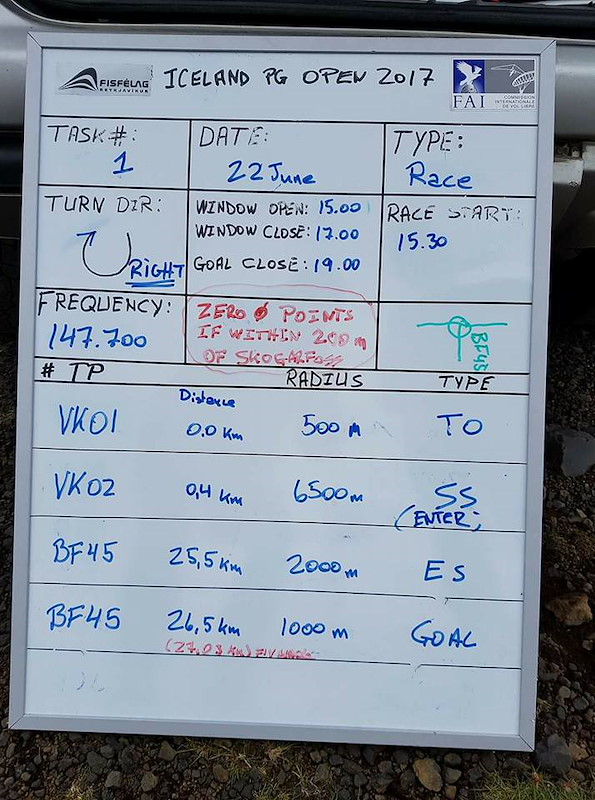 FISFÉLAG
REYKJAVÍKUR
ICELAND PG OPEN 2017
FAI
COMMISSION
INTERNATIONALE
DE VOL LIBRE
TASK#:
1
DATE:
22 June
TYPE:
Race
TURN DIR:
RIGHT
WINDOW OPEN: 15.00
WINDOW CLOSE: 17.00
GOAL CLOSE: 19.00
RACE START:
15.30
FREQUENCY:
147.700
ZERO 0 POINTS
IF WITHIN 200m
OF SKOGARFOSS
BF45
# TP
RADIUS
TYPE
Distance
VK01 0.0 km 500 m TO
VK02 0,4 km 6500m SS
(ENTER)
BF45 25,5 km 2000m ES
BF45 26,5 km 1000 m GOAL